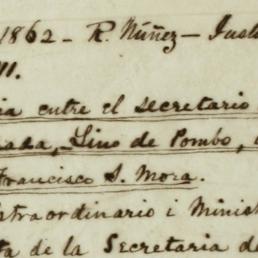 1862 - R. Núñez - Justo
111.
ia entre el secretario
ada, Lino de Pombo,
Francisco S. Mora.
xtraordinario i Minist
ta de la Secretaria de